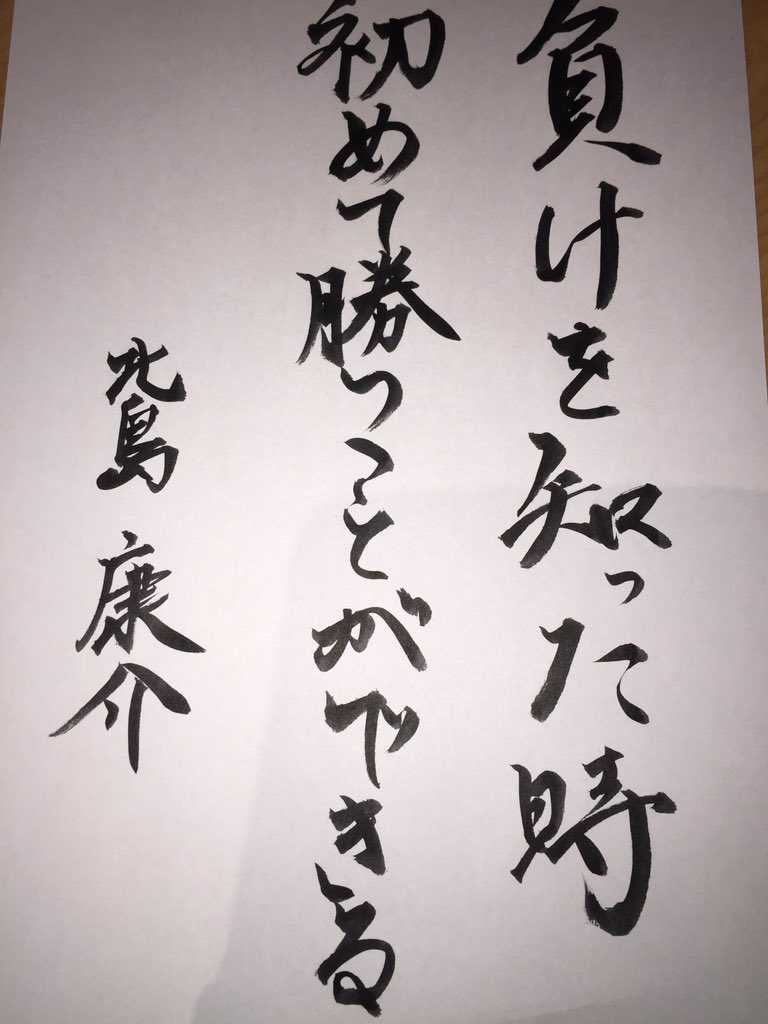 負けを知った時
初めて勝つことができる
北島 康介